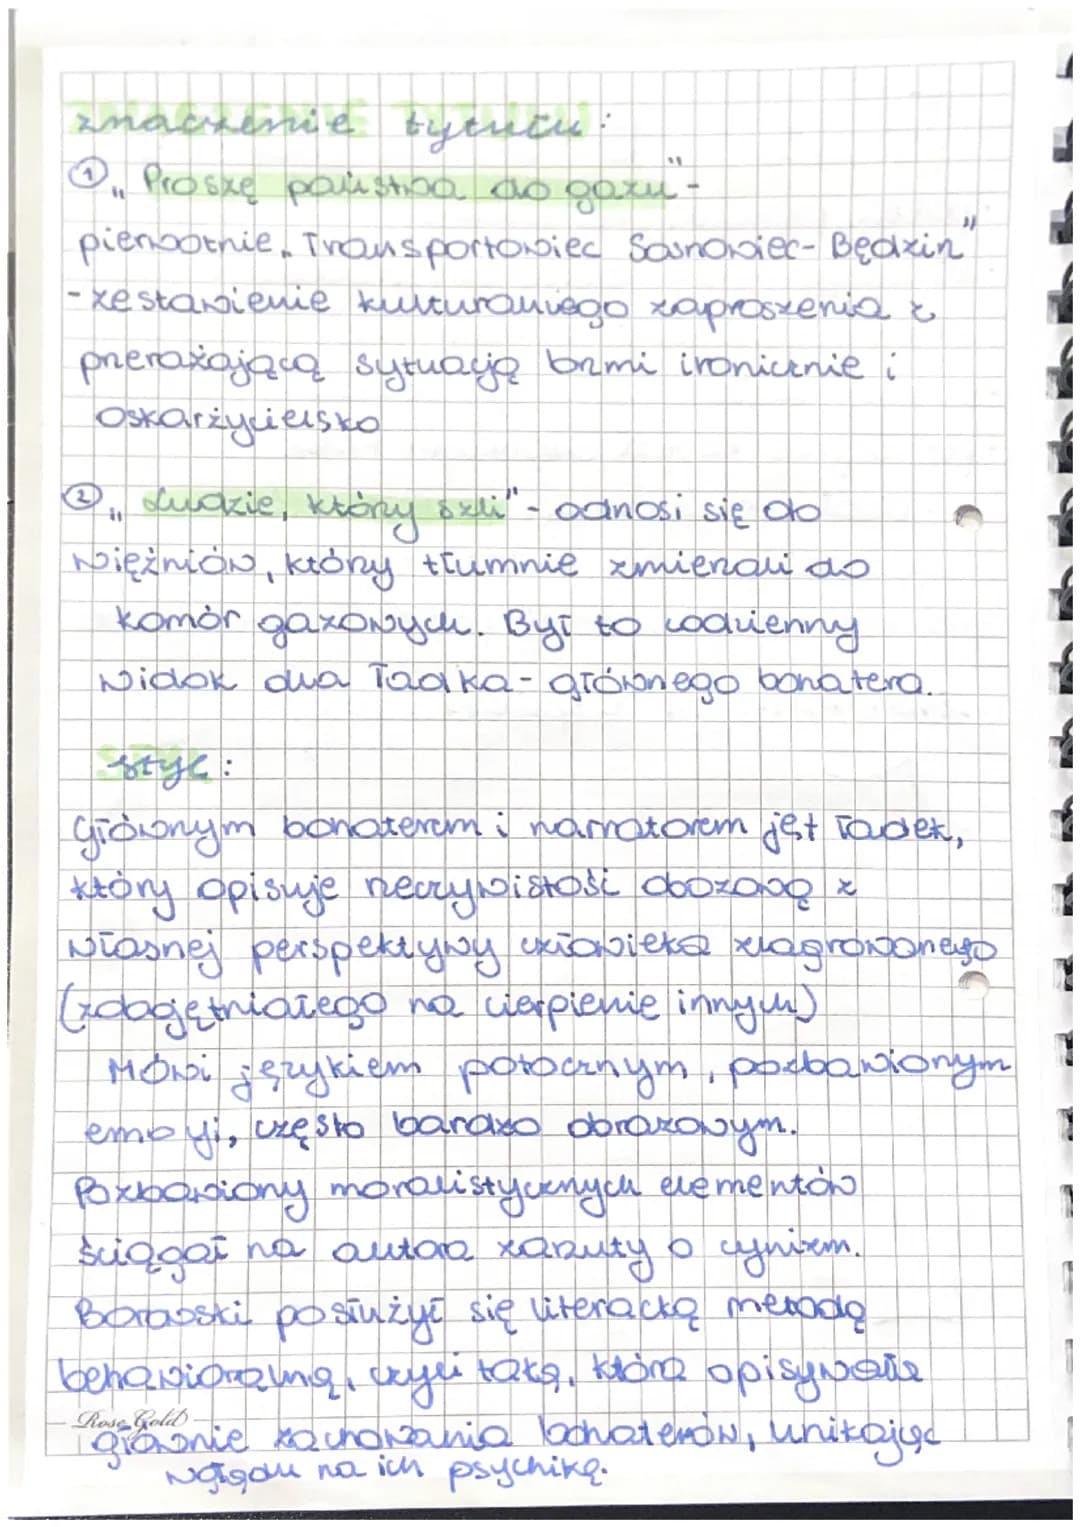 znaczenie tytułu:
① „Proszę państwa do gazu"-
pierwotnie „Transportowiec Sosnowiec-Będzin"
-zestawienie kulturalnego zaproszenia z
przerażającą sytuacją brzmi ironicznie i
oskarżycielsko
② „Ludzie, który szli"- odnosi się do
więźniów, który tłumnie zmierzali do
komór gazowych. Był to codzienny
widok dla Tadka- głównego bohatera.
styl:
Głównym bohaterem i narratorem jest Tadek,
który opisuje rzeczywistość obozową z
własnej perspektywy człowieka zlagrowanego
(zobojętniałego na cierpienie innych)
Mówi językiem potocznym, pozbawionym
emocji, często bardzo obrazowym.
Pozbawiony moralistycznych elementów
ściągał na autora zarzuty o cynizm.
Borowski posłużył się literacką metodą
behawioralną, czyli taką, która opisywała
Rose Gold
głównie zachowania bohaterów, unikając
wglądu na ich psychikę.